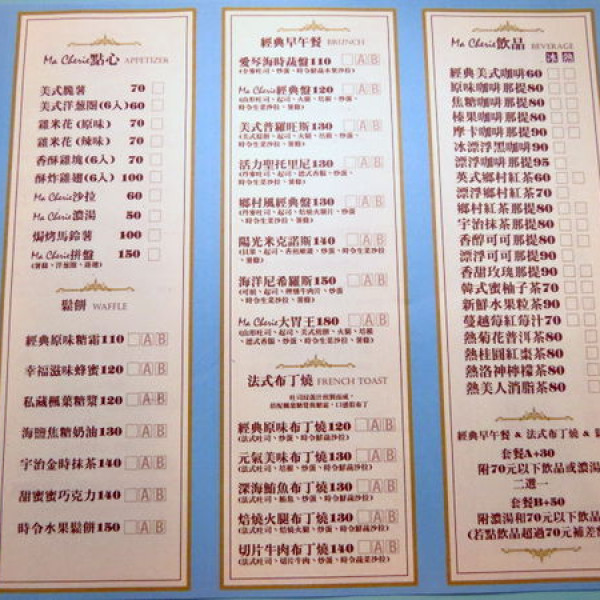 Ma Cherie點心 APPETIZER
美式脆薯 70
美式洋蔥圈(6入)60
雞米花(原味) 70
雞米花(辣味) 70
香酥雞塊(6入) 70
酥炸雞翅(6入)100
Ma Cherie沙拉 60
Ma Cherie濃湯 50
焗烤馬鈴薯 100
Ma Cherie拼盤 150
(薯條、洋蔥圈、雞翅)
鬆餅 WAFFLE
經典原味糖霜110 A B
幸福滋味蜂蜜120 A B
私藏楓葉糖漿120 A B
海鹽焦糖奶油130 A B
宇治金時抹茶140 A B
甜蜜蜜巧克力140 A B
時令水果鬆餅150 A B
經典早午餐 BRUNCH
愛琴海時蔬盤110 A B
Ma Cherie經典盤120 A B
美式普羅旺斯130 A B
活力聖托里尼130 A B
鄉村風經典盤130 A B
陽光米克諾斯140 A B
海洋尼希羅斯150 A B
Ma Cherie大胃王180 A B
法式布丁燒 FRENCH TOAST
經典原味布丁燒120 A B
(法式吐司、炒蛋、時令鮮蔬沙拉)
元氣美味布丁燒130 A B
(法式吐司、培根、炒蛋、時令鮮蔬沙拉)
深海鮪魚布丁燒130 A B
(法式吐司、鮪魚、炒蛋、時令鮮蔬沙拉)
焙燒火腿布丁燒130 A B
(法式吐司、焙燒火腿、炒蛋、時令鮮蔬沙拉)
切片牛肉布丁燒140 A B
(法式吐司、切片牛肉、炒蛋、時令蔬菜沙拉)
Ma Cherie飲品 BEVERAGE
冰 熱
經典美式咖啡60
原味咖啡那提80
焦糖咖啡那提90
榛果咖啡那提90
摩卡咖啡那提90
冰漂浮黑咖啡90
漂浮咖啡那提95
英式鄉村紅茶60
漂浮鄉村紅茶70
鄉村紅茶那提80
宇治抹茶那提80
香醇可可那提80
漂浮可可那提90
香甜玫瑰那提90
韓式蜜柚子茶70
新鮮水果粒茶90
蔓越莓紅莓汁70
熱菊花普洱茶80
熱桂圓紅棗茶80
熱洛神檸檬茶80
熱美人消脂茶80
經典早午餐 & 法式布丁燒 &
套餐A+30
附70元以下飲品或濃湯
二選一
套餐B+50
附濃湯和70元以下飲品
(若點飲品超過70元補差